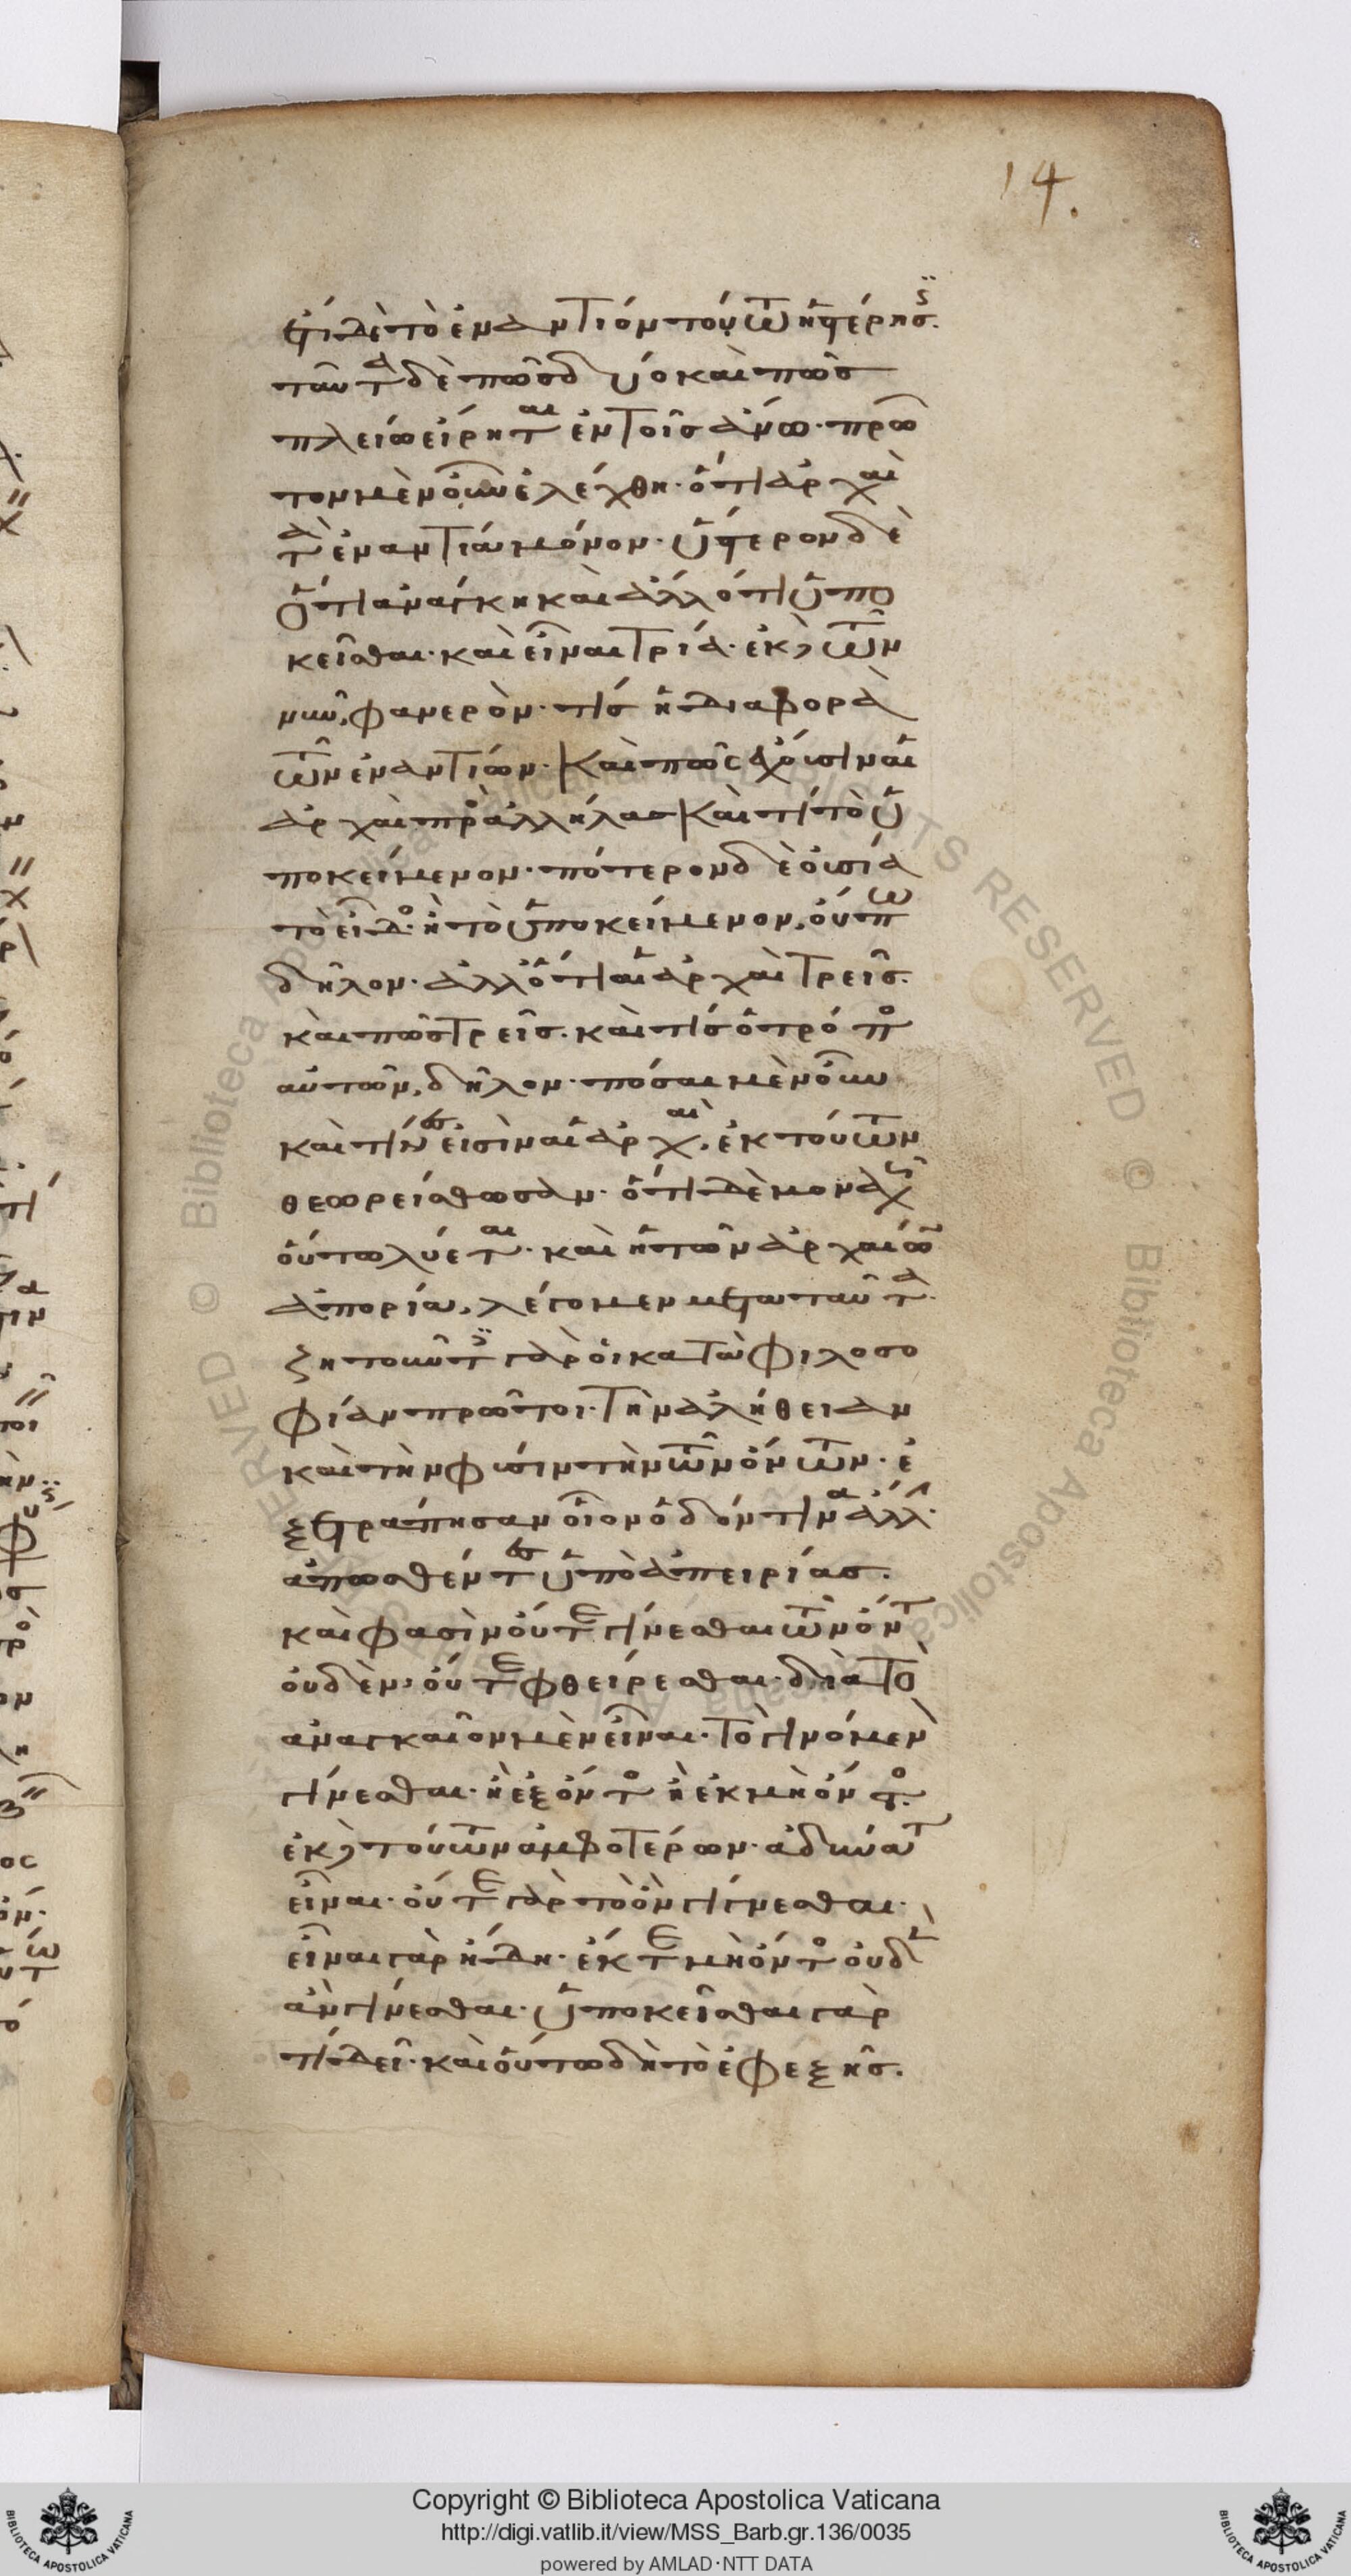 14.
ἔτι δὲ τὸ ἐναντίον τούτω ἡ στέρησις.
ταῦτα δὲ πῶς δύο καὶ πῶς
πλείω εἴρηται ἐν τοῖς ἄνω· πρῶ
τον μὲν οὖν ἐλέχθη· ὅτι ἀρχαὶ
τὰ ἐναντία μόνον· ὕστερον δὲ
ὅτι ἀνάγκη καὶ ἄλλό τι ὑπο
κεῖσθαι· καὶ εἶναι τρία· ἐκ δὲ τῶν
νῦν, φανερὸν· τίς ἡ διαφορὰ
τῶν ἐναντίων· καὶ πῶς ἔχουσιν αἱ
ἀρχαὶ πρὸς ἀλλήλας καὶ τί τὸ ὑ
ποκείμενον· πότερον δὲ οὐσία
τὸ εἶδος ἢ τὸ ὑποκείμενον, οὔπω
δῆλον· ἀλλ' ὅτι αἱ ἀρχαὶ τρεῖς.
καὶ πῶς τρεῖς. καὶ τίς ὁ τρόπος
αὐτῶν, δῆλον· πόσαι μὲν οὖν
καὶ τίνες εἰσὶν αἱ ἀρχαὶ, ἐκ τούτων
θεωρείσθωσαν· ὅτι δὲ μοναχῶς
οὕτω λύεται· καὶ ἡ τῶν ἀρχαίων
ἀπορία, λέγομεν μετὰ ταῦτα.
ζητοῦντες γὰρ οἱ κατὰ φιλοσο
φίαν πρῶτοι· τὴν ἀλήθειαν
καὶ τὴν φύσιν τὴν τῶν ὄντων· ἐ
ξετράπησαν οἷον ὁδόν τινα ἄλλην·
ἀπωσθέντες ὑπὸ ἀπειρίας.
καὶ φασὶν οὔτε γίνεσθαι τῶν ὄντων
οὐδὲν, οὔτε φθείρεσθαι· διὰ τὸ
ἀναγκαῖον μὲν εἶναι· τὸ γινόμενὸν
γίνεσθαι· ἢ ἐξ ὄντος ἢ ἐκ μὴ ὄντος.
ἐκ δὲ τούτων ἀμφοτέρων· ἀδύνατον
εἶναι· οὔτε γὰρ τὸ ὂν γίγνεσθαι·
εἶναι γὰρ ἤδη· ἔκ τε μὴ ὄντος οὐδὲν
ἂν γίνεσθαι· ὑποκεῖσθαι γὰρ
τί δεῖ· καὶ οὕτω δὴ τὸ ἐφεξῆς.
Copyright © Biblioteca Apostolica Vaticana
http://digi.vatlib.it/view/MSS_Barb.gr.136/0035
powered by AMLAD·NTT DATA